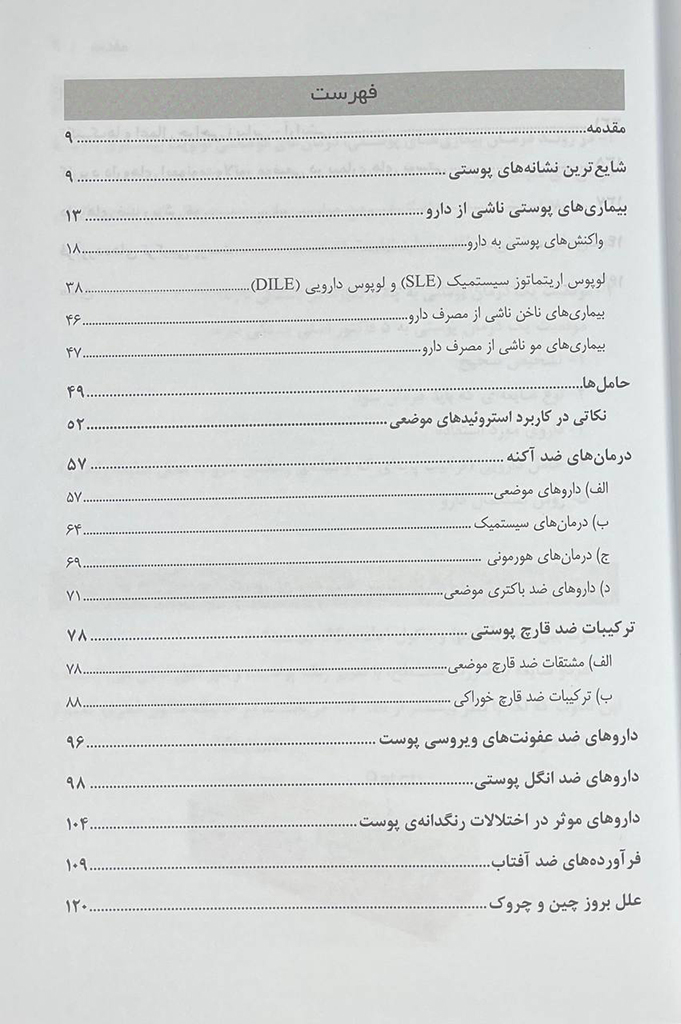 فهرست
مقدمه ... ۹
شایع‌ترین نشانه‌های پوستی ... ۹
بیماری‌های پوستی ناشی از دارو ... ۱۳
واکنش‌های پوستی به دارو ... ۱۸
لوپوس اریتماتوز سیستمیک (SLE) و لوپوس دارویی (DILE) ... ۳۸
بیماری‌های ناخن ناشی از مصرف دارو ... ۴۶
بیماری‌های مو ناشی از مصرف دارو ... ۴۷
حامل‌ها ... ۴۹
نکاتی در کاربرد استروئیدهای موضعی ... ۵۲
درمان‌های ضد آکنه ... ۵۷
الف) داروهای موضعی ... ۵۷
ب) درمان‌های سیستمیک ... ۶۴
ج) درمان‌های هورمونی ... ۶۹
د) داروهای ضد باکتری موضعی ... ۷۱
ترکیبات ضد قارچ پوستی ... ۷۸
الف) مشتقات ضد قارچ موضعی ... ۷۸
ب) ترکیبات ضد قارچ خوراکی ... ۸۸
داروهای ضد عفونت‌های ویروسی پوست ... ۹۶
داروهای ضد انگل پوستی ... ۹۸
داروهای موثر در اختلالات رنگدانه‌ی پوست ... ۱۰۴
فرآورده‌های ضد آفتاب ... ۱۰۹
علل بروز چین و چروک ... ۱۲۰